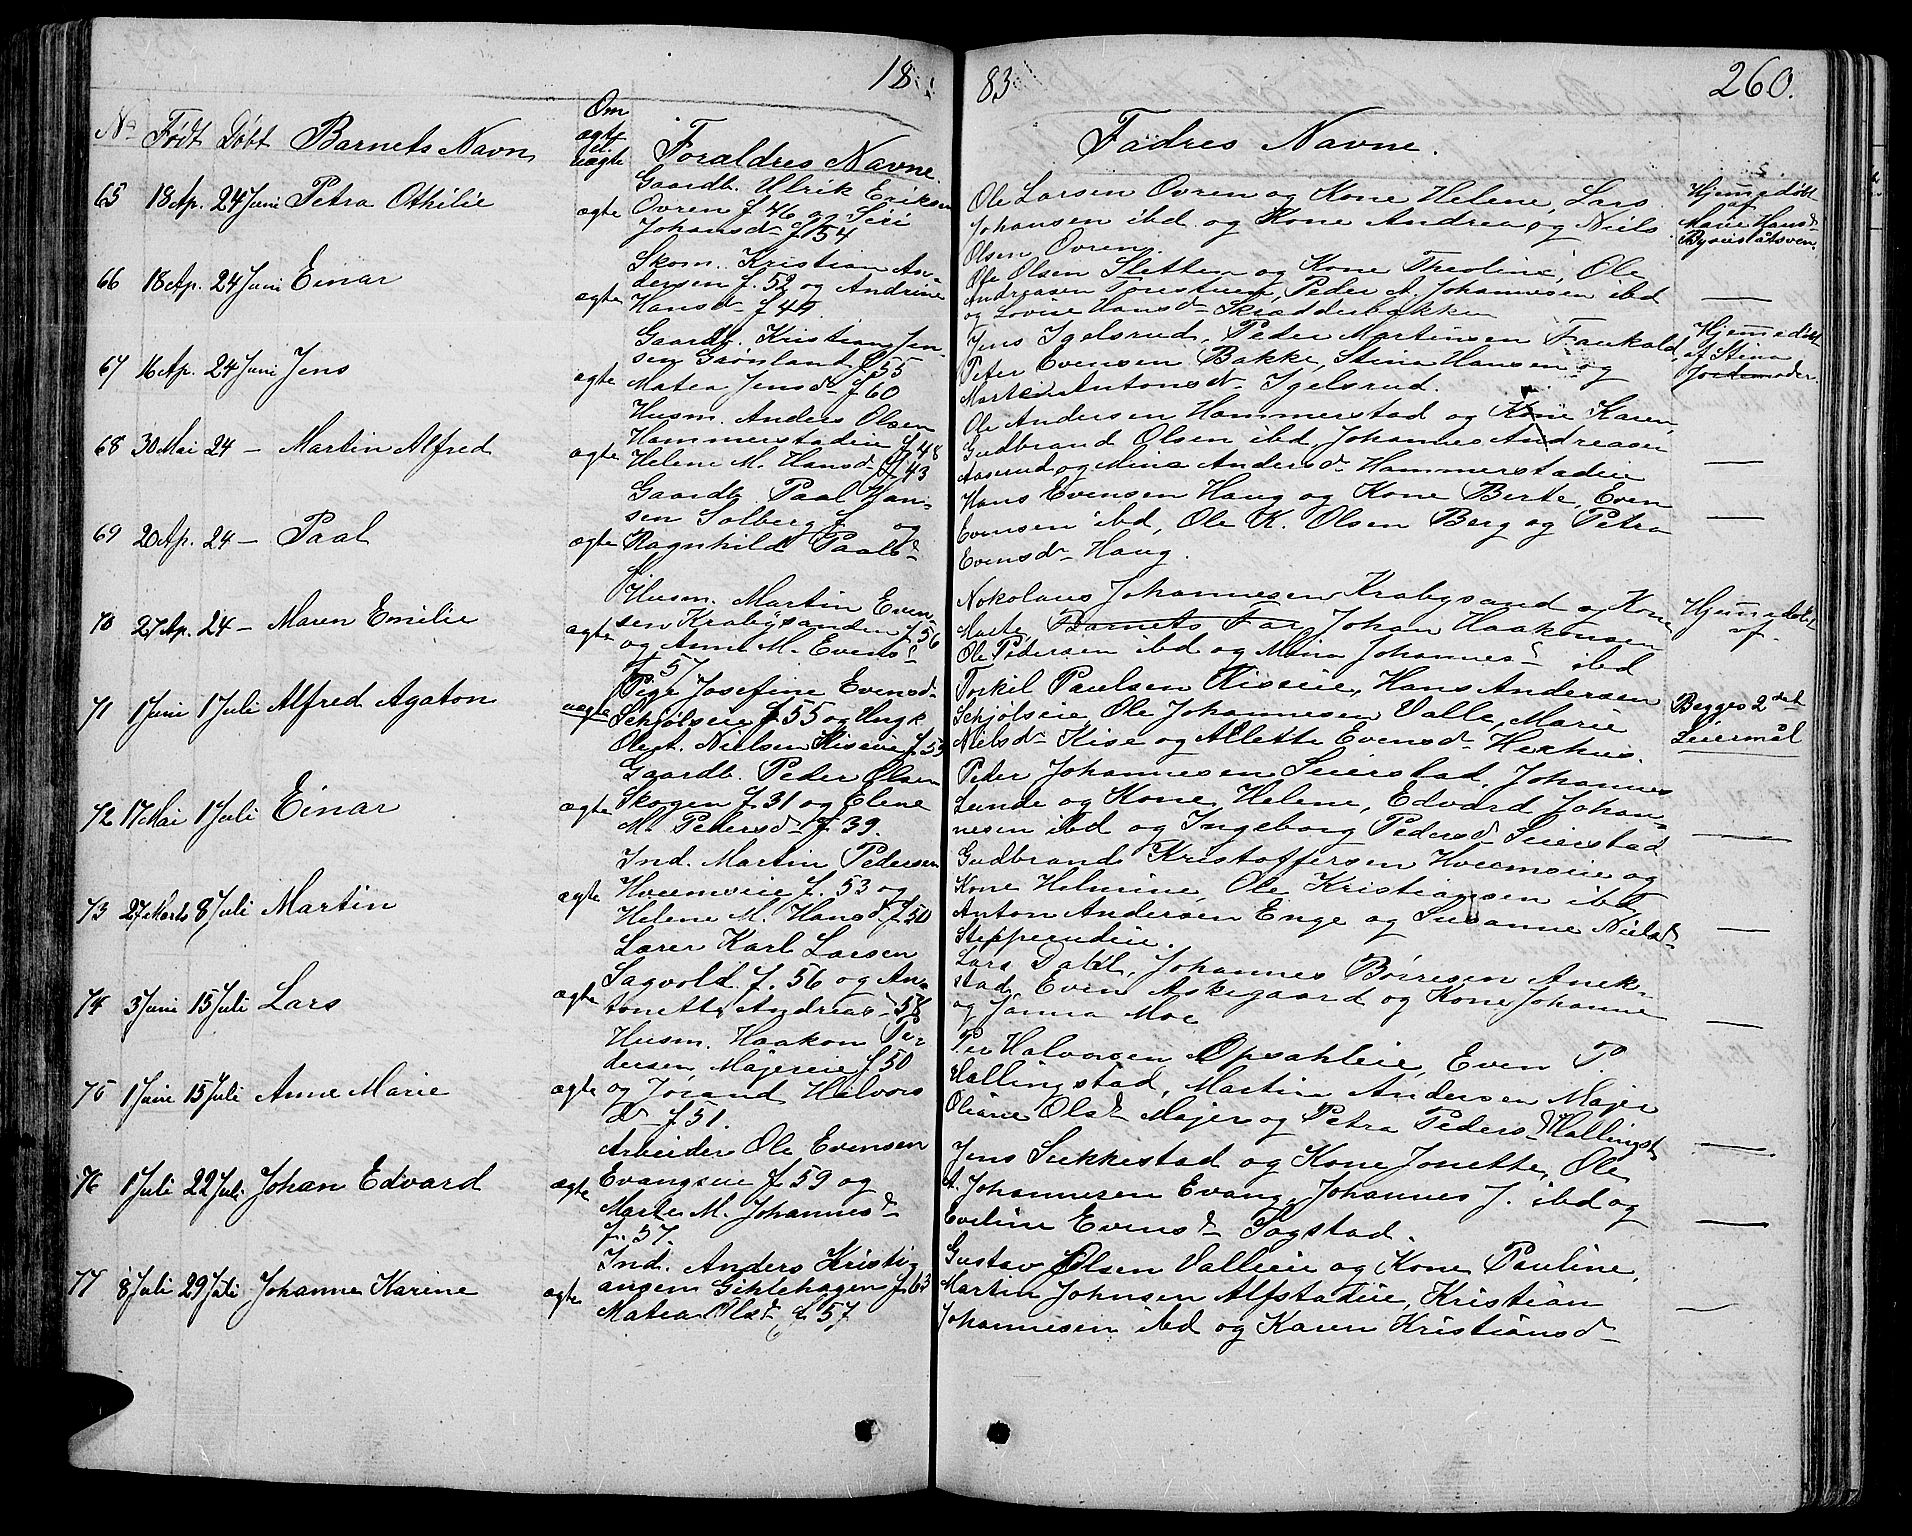 18
83
260.
No Født Døbt Barnets Navn Om ægte el. uægte Foraldres Navne. Fadres Navne.
65 18 Ap. 24 Juni Petra Othilie ægte
Gaardb. Ulrik Eriksen
Ovren f 46 og Siri
Johansd f 54
Ole Larsen Ovren og Kone Helene, Lars
Johansen ibd og Kone Andrea og Niels
Olsen Ovren.
Hjemmedøbt
af
Marie Hansd
66 18 Ap. 24 Juni Einar ægte
Skom. Kristian An-
dersen f. 52 og Andrine
Hansd f 44.
Ole Olsen Sletten og Kone Theoline, Ole
Andreasen, Peder A. Johannesen ibd
og Lovise Hansd Skrædderbakken
—
67 16 Ap. 24 Juni Jens ægte
Gaardb. Kristian Jen-
sen Grønland f 55
Matea Jensd f 60
Jens Igelsrud, Peder Martinsen Faukald,
Peter Evensen Bakke, Stina Hansen og
Antonsd Igelsrud.
Hjemmedøbt
af Stina
Jordemoder.
68 30 Mai 24 — Martin Alfred ægte
Husm. Anders Olsen
Hammerstadeie f 48
Helene M. Hansd f 43
Ole Andersen Hammerstad og Kone Karen,
Gudbrand Olsen ibd, Johannes Andreasen
Aaserud og Mina Andersd Hammerstadeie
—
69 20 Ap. 24 — Paal ægte
Gaardb. Paal Han-
sen Solberg f. og
Ragnhild Paalsd
f.
Hans Evensen Haug og Kone Berte, Even
Evensen ibd, Ole K. Olsen Berg og Petra
Evensd Haug.
—
70 27 Ap. 24 — Maren Emilie ægte
Husm. Martin Even-
sen Krabysanden f 56
og Anne M. Evensd
f 57
Nokolaus Johannesen Krabysand og Kone
Marte, Barnets Far, Johan Haakonsen
Ole Pedersen ibd og Mina Johannesd ibd
Hjemmedøbt
af.
71 1 Juni 1 Juli Alfred Agaton uægte
Pige Josefine Evensd
Schjølseie f 55 og Ungk
Olept. Nielsen Kiseeie f 55
Torkil Paulsen Kiseeie, Hans Andersen
Schjølseie, Ole Johannesen Valle, Marie
Nielsd Kise og Allette Evensd Hexhus.
Begges 2det
Leiermål
72 17 Mai 1 Juli Einar ægte
Gaardb. Peder Olsen
Skogen f 31 og Elene
M. Pedersd f 39.
Peder Johannesen Seierstad, Johannes
Lunde og Kone Helene, Edvard Johan-
nesen ibd og Ingeborg Pedersd Seierstad
—
73 27 Marts 8 Juli Martin ægte
Ind. Martin Pedersen
Hveemseie f. 53 og
Helene M. Hansd f 50
Gudbrand Kristoffersen Hveemseie og
Kone Helmine, Ole Kristiansen ibd
Anton Andersen Enge og Susanne Nielsd
Steppeendeie.
—
74 3 Juni 15 Juli Lars ægte
Lærer Karl Larsen
Sagvold f. 56 og An-
tonette Andreasd 58
Lars Dahl, Johannes Børresen Anek-
stad, Even Askegaard og Kone Johanne
og Janna Moe
—
75 1 Juni 15 Juli Anne Marie ægte
Husm. Haakon Pe-
dersen Majereie f 50
og Jørand Halvors
d f 51.
Per Halvorsen Opsahleie, Even P.
Hallingstad, Martin Andersen Majer
Oliane Olsd Majer og Petra Pedersd Hallingst.
—
76 1 Juli 22 Juli Johan Edvard ægte
Arbeider Ole Evensen
Evangseie f 59 og
Marte M. Johannesd
f. 57.
Jens Sukkestad og Kone Jonette, Ole
A. Johannesen Evang, Johannes J. ibd og
Eveline Evensd Sogstad.
—
77 8 Juli 29 Juli Johanne Karine ægte
Ind. Anders Kristi-
ansen Gihlehagen f 63
Matea Olsd f 57
Gustav Olsen Valleeie og Kone Pauline,
Martin Johnsen Alfstadeie, Kristian
Johannesen ibd og Karen Kristiansd
—